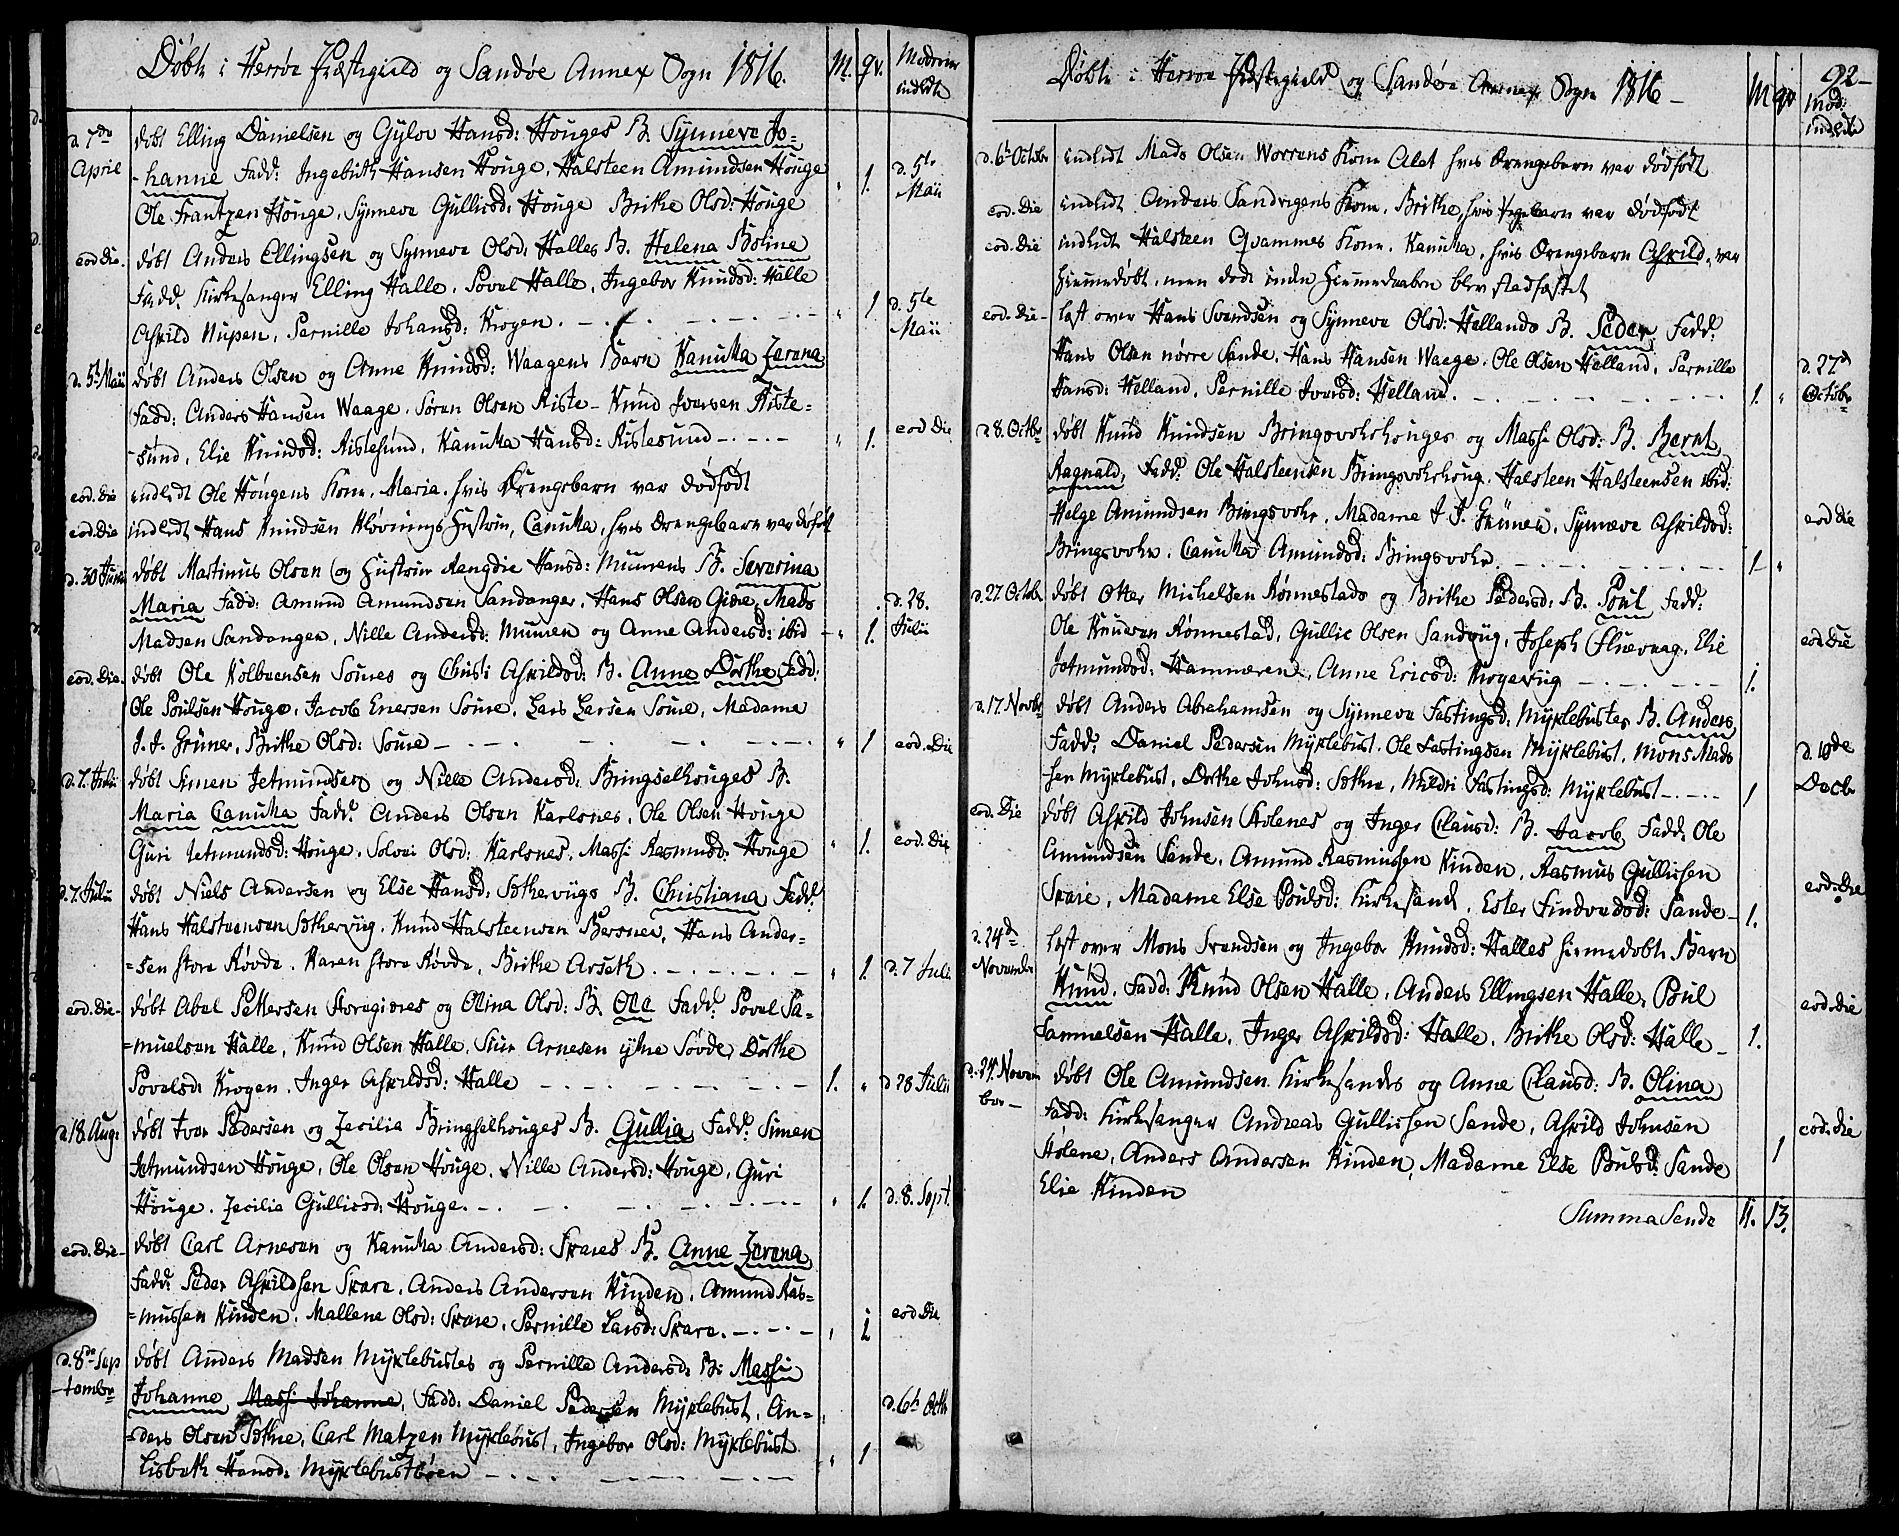 Døbte i Herröe Præstegield og Sandøe Annex Sogn 1816. M. qv. Moderen indledt
d. 7de døbt Elling Danielsen og Gylov Hansd: Houges B. Synneva Jo-
April -hanne Fadd: Ingebrith Hansen Houge, Halsteen Amundsen Houge " 1. d. 5te Maii
Ole Frantzen Houge, Synneva Gullicsd: Houge Brithe Olsd: Houge
eod die. døbt Anders Ellingsen og Synneve Olsd: Halles B. Helena Boline
Fadd: Kirkesanger Elling Halle, Povel Halle, Ingebor Knudsd: Halle
Askild Nupen, Pernille Johansd: Krogen. " 1 d. 5te Maii
d. 5te Maii døbt Anders Olsen og Anne Knudsd: Waagens Barn Kanutha Zerena
Fadd: Anders Hansen Waage, Søren Olsen Riste- Knud Iversen Riste=
-sund, Elie Knudsd: Ristesund, Kanutha Hansd: Ristesund " 1. eod die
eod. die indledt Ole Hougens Kone, Maria, hvis Drengebarn var dødfødt
eod. Die indledt Hans Knudsen Kløvnings Hustrue, Canutha, hvis Drengebarn var døfødt
d. 30 Junii døbt Martinus Olsen og Hustrue Rengdie Hansd: Muurens B. Severina
Maria Fadd: Amund Amundsen Sandanger, Hans Olsen Giøre, Mads
Madsen Sandanger, Nille Andersd: Muuren og Anne Andersd: ibid " 1. d. 28. Julii
eod. Die. døbt Ole Kolbensen Soures og Christi Askildsd: B. Anne Dorthe Fadd:
Ole Poulsen Houge, Jacob Enersen Soure, Lars Larsen Soure, Madame
J. J. Grüner, Brithe Olsd: Soure " 1 eod. Die
d. 7. Julii døbt Simen Jetmundsen og Nille Andersd: Bringselhouges B.
Maria Canutha Fadd: Anders Olsen Karlsnes, Ole Olsen Houge
Guri Jetmundsd: Houge, Solvei Olsd: Karlsnes, Massi Rasmusd: Houge " 1. eod. Die
d. 7. Julii døbt Niels Andersen og Else Hansd: Sothevigs B. Christiana Fadd:
Hans Halsteensen Sothevig, Knud Halsteensen Bersnes, Hans Ander-
=sen store Røvde, Karen store Røvde, Brithe Arseth. " 1. d. 7 Julii
eod. Die. døbt Abel Pettersen Storagiones og Olina Olsd: B. Ole Fadd: Povel Sa-
=muelsen Halle, Knud Olsen Halle, Siur Arnesen ytre Søvde, Dorthe
Povelsd: Krogen, Inger Askildsd: Halle 1. " d 28 Julii
d. 18. Aug: døbt Iver Pedersen og Zecilia Bringsselhouges B. Gullia Fadd: Simen
Jetmundsen Houge, Ole Olsen Houge, Nille Andersd: Houge, Guri
Houge, Zecilia Gullicsd: Houge. " 1. d. 8. Sept.
eod. Die- døbt Carl Arnesen og Kanutha Andersd: Skares B. Anne Zerena
Fadd: Peder Askildsen Skare, Anders Andersen Kinden, Amund Ras-
=mussen Kinden, Mallene Olsd: Skare, Pernille Larsd: Skare. " 1 eod Die
d. 8de Sep døbt Anders Madsen Myklebustes og Pernille Andersd: B: Massi
-tembr Johanne Massi Johanne, Fadd: Daniel Pedersen Myklebust, An-
=ders Olsen Sothe, Carl Matzen Myklebust, Ingebor Olsd: Myklebust d. 6te Octb
Lisbeth Hansd: Myklebustbøen " 1
Døbte i Herröe Præstegield og Sandøe Annex Sogn 1816- M qv 92- Mod: indledt
d. 6te Octobr indledt Mads Olsen Worrens Kone Alet hvis Drengebarn var dødfødt
eod. Die indledt Anders Sandvigens Kone, Brithe, hvis Pigebarn var dødfødt
eod. Die indledt Halsteen Qvammes Kone, Kanutha, hvis Drengebarn Askild, var
hiemmedøbt, men døde inden hiemmedaaben blev stadfæstet
eod. die- læst over Hans Svendsen og Synneve Olsd: Hellands B. Peder, Fadd:
Hans Olsen nørre Sande, Hans Hansen Waage, Ole Olsen Helland, Pernille
Hansd: Helland, Pernille Iversd: Helland. 1. " d. 27de Octobr
d 8. Octbr døbt Knud Knudsen Bringsvohrhouges og Massi Olsd: B. Bernt
Ragnald, Fadd: Ole Halsteensen Bringsvohrhoug, Halsteen Halsteensen ibid:
Helge Amundsen Bringsvohr, Madame J J. Grüner, Synneve Askildsd: eod die
Bringsvohr, Canutha Amundsd: Bringsvohr. 1 "
d. 27 Octobr døbt Otter Michelsen Rønnestads og Brithe Pedersd: B. Poul Fadd:
Ole Knudsen Rønnestad, Gullic Olsen Sandvig, Joseph Fluevaag, Elie eod Die
Jetmundsd: Hamneren, Anne Ericsd: Krogevig 1.
d. 17. Novbr døbt Anders Abrahamsen og Synneve Fastingsd: Myklebustes B. Anders
Fadd: Daniel Pedersen Myklebust, Ole Fastingsen Myklebust, Mons Mads d. 10de
sen Myklebust, Dorthe Johnsd: Sothe, Mildri Fastingsd: Myklebust 1 Decbr
eod. Die døbt Askild Johnsen Stolenes og Inger Clausd: B. Jacob Fadd: Ole
Amundsen Sande, Amund Rasmussen Kinden, Rasmus Gullichsen eod. Die
Skare, Madame Else Poulsd: Kirkesand, Ester Findvedsd: Sande- 1.
d. 24de læst over Mons Svendsen og Ingebor Knudsd: Halles hiemmedøbte Barn
Novembr Knud. Fadd: Knud Olsen Halle, Anders Ellingsen Halle, Poul eod. Die
Samuelsen Halle, Inger Askildsd: Halle, Brithe Olsd: Halle - 1.
d. 24 Novem døbt Ole Amundsen Kirkesandes og Anne Clausd: B. Olina
ber- Fadd: Kirkesanger Andreas Gullichsen Sande, Askild Johnsen eod. die
Stolene, Anders Andersen Kinden, Madame Else Poulsd: Sande 1
Elie Kinden
Summa Sande 11. 13.